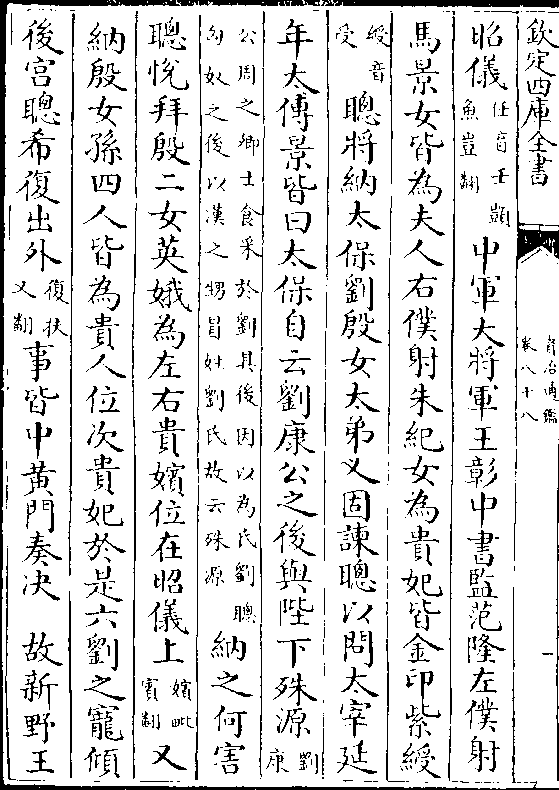 欽定四庫全書
資治通鑑
卷八十八
昭儀任音壬顗魚豈翻中軍大將軍王彰中書監范隆左僕射
馬景女皆為夫人右僕射朱紀女為貴妃皆金印紫綬
綬音受聰將納太保劉殷女太弟乂固諫聰以問太宰延
年太傅景皆曰太保自云劉康公之後與陛下殊源劉康
公周之卿士食采於劉其後因以為氏劉聰匈奴之後以漢之甥冒姓劉氏故云殊源納之何害
聰悅拜殷二女英娥為左右貴嬪位在昭儀上嬪毗賓翻又
納殷女孫四人皆為貴人位次貴妃於是六劉之寵傾
後宮聰希復出外復扶又翻事皆中黃門奏決 故新野王